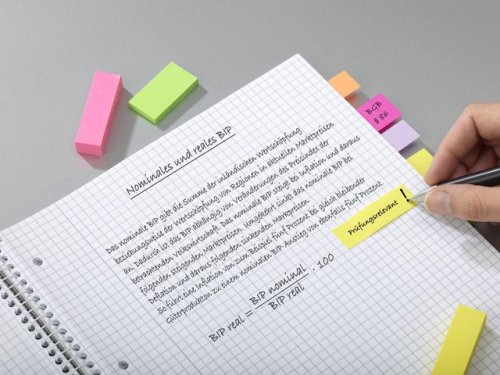 Nominales und reales BIP
Das nominale BIP gibt die Summe der inländischen Wertschöpfung
beziehungsweise der Wertschöpfung von Regionen in aktuellen Marktpreisen
an. Dadurch ist das BIP abhängig von Veränderungen des Preisindex der
betrachtenden Volkswirtschaft. Das nominale BIP steigt bei Inflation und daraus
folgenden steigenden Marktpreisen. Umgekehrt sinkt das nominale BIP bei
Deflation und daraus folgenden sinkenden Marktpreisen.
So führt eine Inflation von zum Beispiel fünf Prozent bei gleich bleibender
Güterproduktion zu einem nominalen BIP Anstieg von ebenfalls fünf Prozent
BIP real = BIP nominal / BIP real · 100
BGB
§ 86
Prüfungsrelevant !